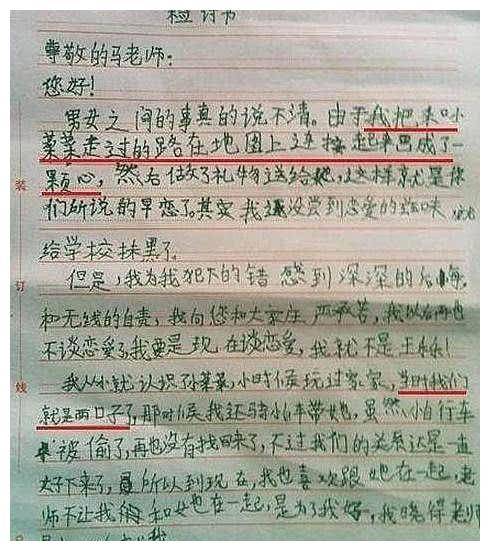 检讨书
尊敬的马老师:
您好!
男女之间的事真的说不清。由于我把和叶
菜菜走过的路在地图上连接起来画成了一
颗心,然后做了礼物送给她,这样就是你
们所说的早恋了。其实我还没尝到恋爱的滋味 就
给学校抹黑了。
但是,我为我犯下的错 感到深深的后悔
和无线的自责,我向您和大家庄严承若,我以后再也
不谈恋爱了我要是现在谈恋爱,我就不是王
我从小就认识菜菜,小时候玩过家家,当时我们
就是两口子了,那时候我还骑小自车带她,虽然小自行车
被偷了,再也没有找回来了,不过我们的关系还是一直
好下来了,所以到现在,我也喜欢跟她在一起,老
师不让我和女也在一起,是为了我好,我晓得老师
装
订
线